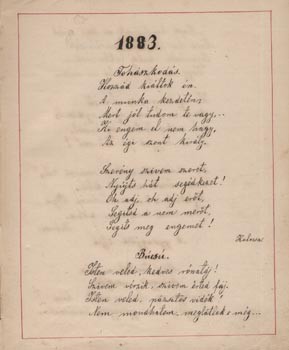 1883.
Fohászkodás.
Hozzád kiáltok én
A munka kezdetén;
Mert jól tudom te vagy...
Ki engem el nem hagy,
Az égi szent király.
Szerény szivem szeret,
Nyujts hát segédkezet!
Oh adj, oh adj erőt,
Segitsd a nem merőt,
Segits meg engemet!
Búcsú.
Isten veled, kedves rónatáj!
Szivem vérzik, szivem érted fáj.
Isten veled, pázsitos vidék!
Nem mondhatom, meglátlak-e még...